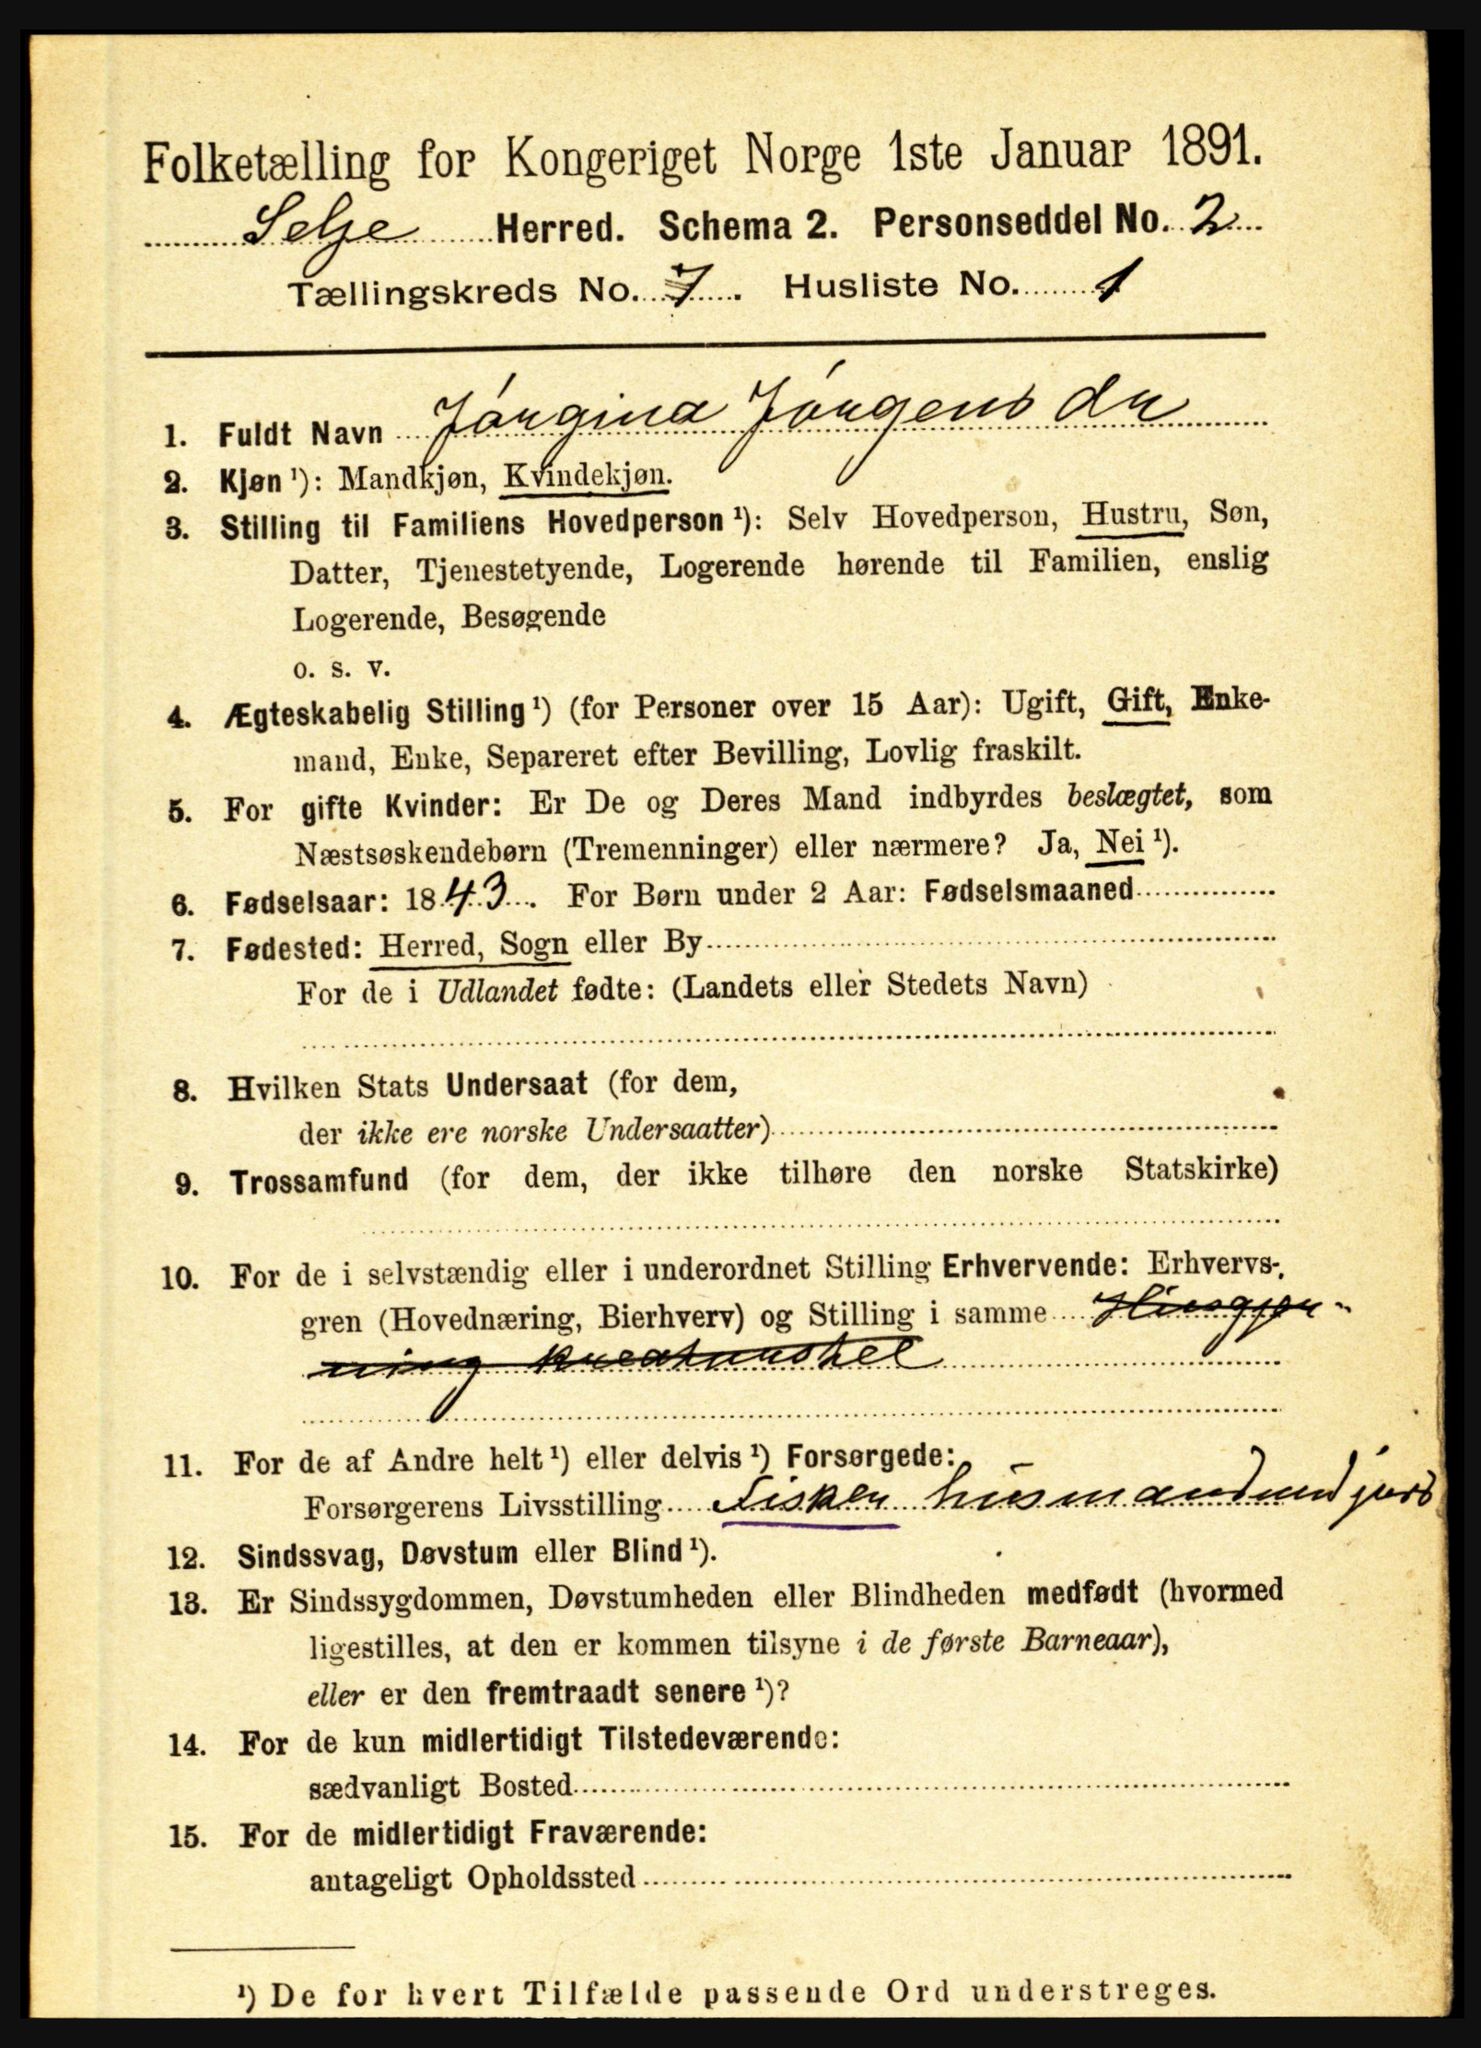 Folketælling for Kongeriget Norge 1ste Januar 1891.
Selje Herred. Schema 2. Personseddel No. 2
Tællingskreds No. 7. Husliste No. 1
1. Fuldt Navn Jørgina Jørgens dr
2. Kjøn ¹): Mandkjøn, Kvindekjøn.
3. Stilling til Familiens Hovedperson ¹): Selv Hovedperson, Hustru, Søn,
Datter, Tjenestetyende, Logerende hørende til Familien, enslig
Logerende, Besøgende
o. s. v.
4. Ægteskabelig Stilling ¹) (for Personer over 15 Aar): Ugift, Gift, Enke-
mand, Enke, Separeret efter Bevilling, Lovlig fraskilt.
5. For gifte Kvinder: Er De og Deres Mand indbyrdes beslægtet, som
Næstsøskendebørn (Tremenninger) eller nærmere? Ja, Nei ¹).
6. Fødselsaar: 1843. For Børn under 2 Aar: Fødselsmaaned
7. Fødested: Herred, Sogn eller By
For de i Udlandet fødte: (Landets eller Stedets Navn)
8. Hvilken Stats Undersaat (for dem,
der ikke ere norske Undersaatter)
9. Trossamfund (for dem, der ikke tilhøre den norske Statskirke)
10. For de i selvstændig eller i underordnet Stilling Erhvervende: Erhvervs-
gren (Hovednæring, Bierhverv) og Stilling i samme Husgjær-
ning kreaturstel
11. For de af Andre helt ¹) eller delvis ¹) Forsørgede:
Forsørgerens Livsstilling Fisker husmand med jord
12. Sindssvag, Døvstum eller Blind ¹).
13. Er Sindssygdommen, Døvstumheden eller Blindheden medfødt (hvormed
ligestilles, at den er kommen tilsyne i de første Barneaar),
eller er den fremtraadt senere ¹)?
14. For de kun midlertidigt Tilstedeværende:
sædvanligt Bosted
15. For de midlertidigt Fraværende:
antageligt Opholdssted
¹) De for hvert Tilfælde passende Ord understreges.